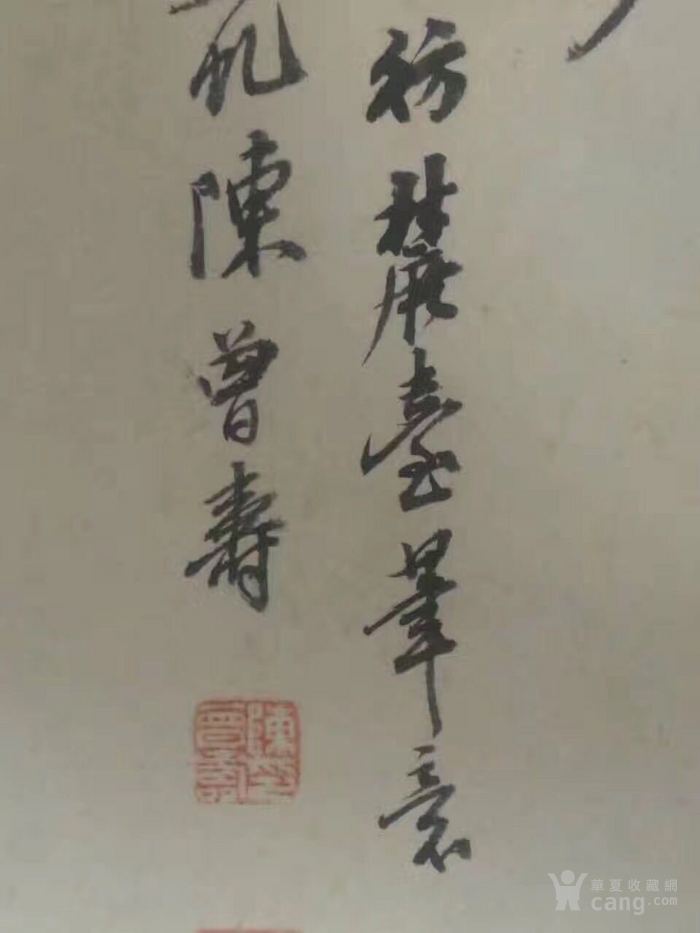 仿麓臺筆意
陳曾壽
陳印曾壽
華夏收藏網
cang.com